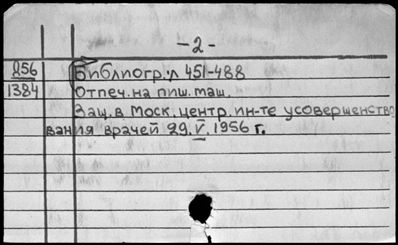 -2-
856 Библиогр. л 451-488
1384 Отпеч. на пиш. маш.
Защ. в Моск. центр. ин-те усовершенство
вания врачей 29. V. 1956 г.